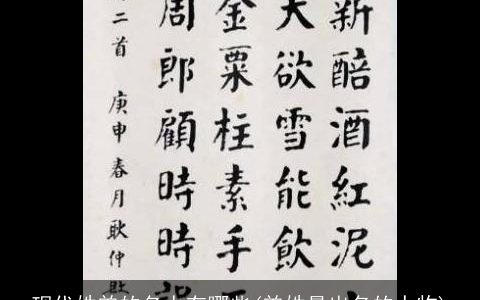 新醅酒紅泥
天欲雪能飲
金粟柱素手
周郎顧時時
二首 庚申春月耿仲
现代姓的名人有哪些(姓最出名的人物)